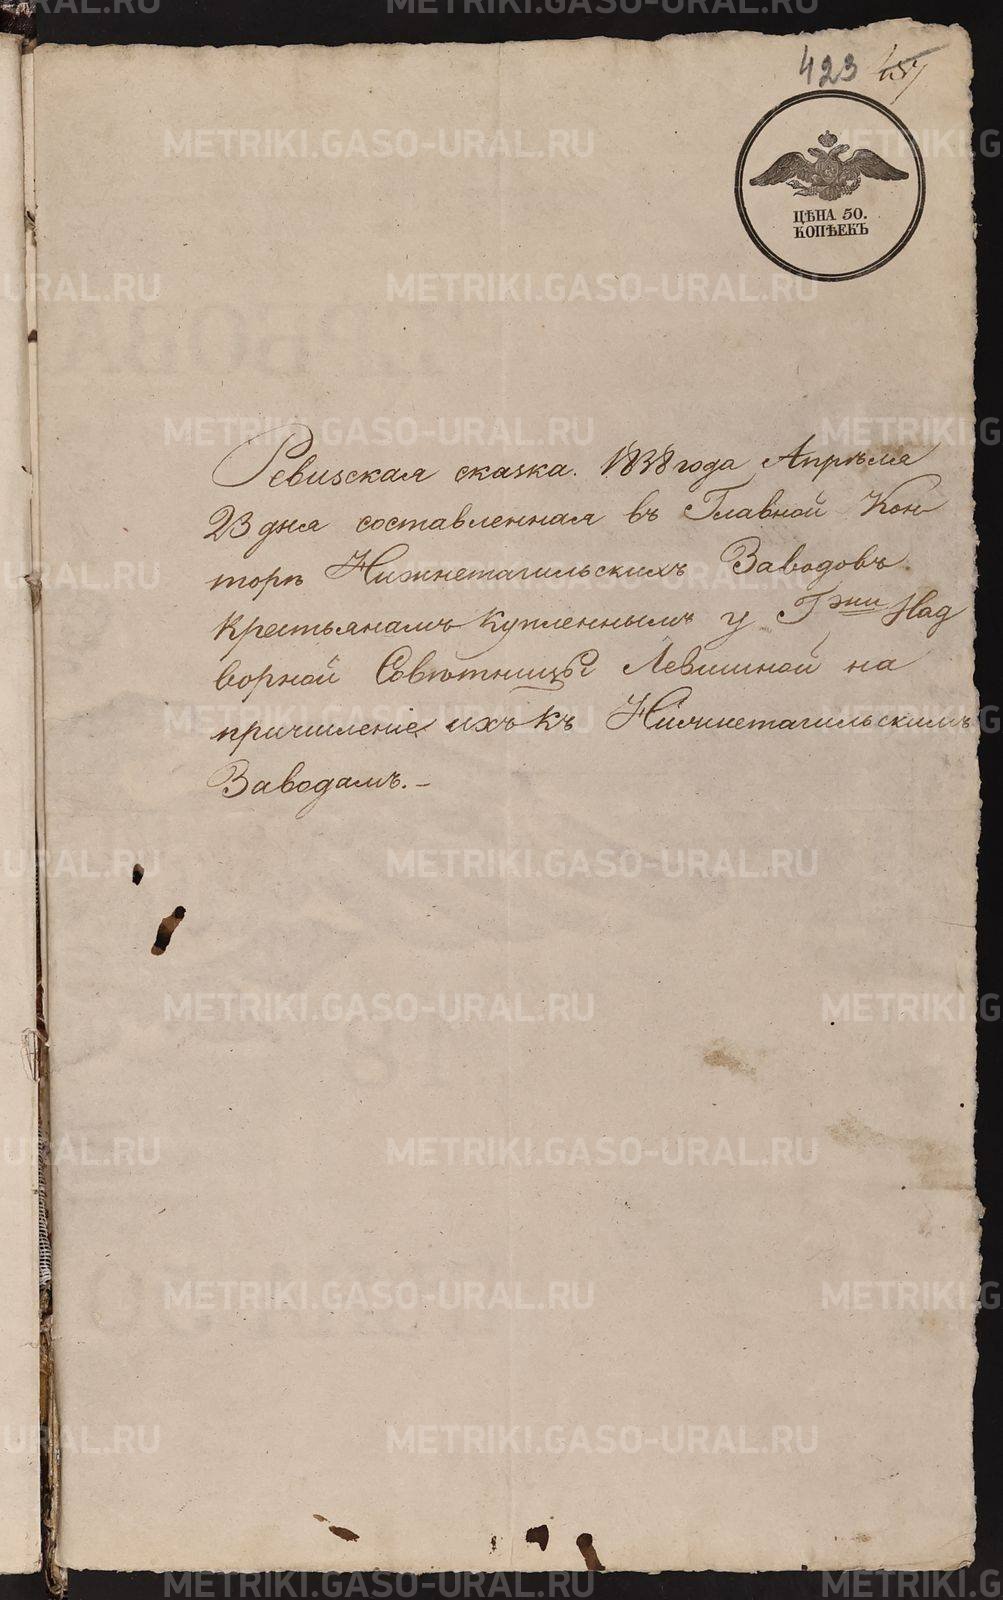 423 457
ЦѢНА 50.
КОПѢЕКЪ
Ревизская сказка. 1838 года Апрѣля
23 дня составленная въ Главной Кон
торѣ Нижнетагильскихъ Заводовъ
крестьянамъ купленнымъ у Гжи Над
ворной Совѣтницы Левшиной на
причисленіе ихъ къ Нижнетагильскимъ
Заводамъ. –
METRIKI.GASO-URAL.RU